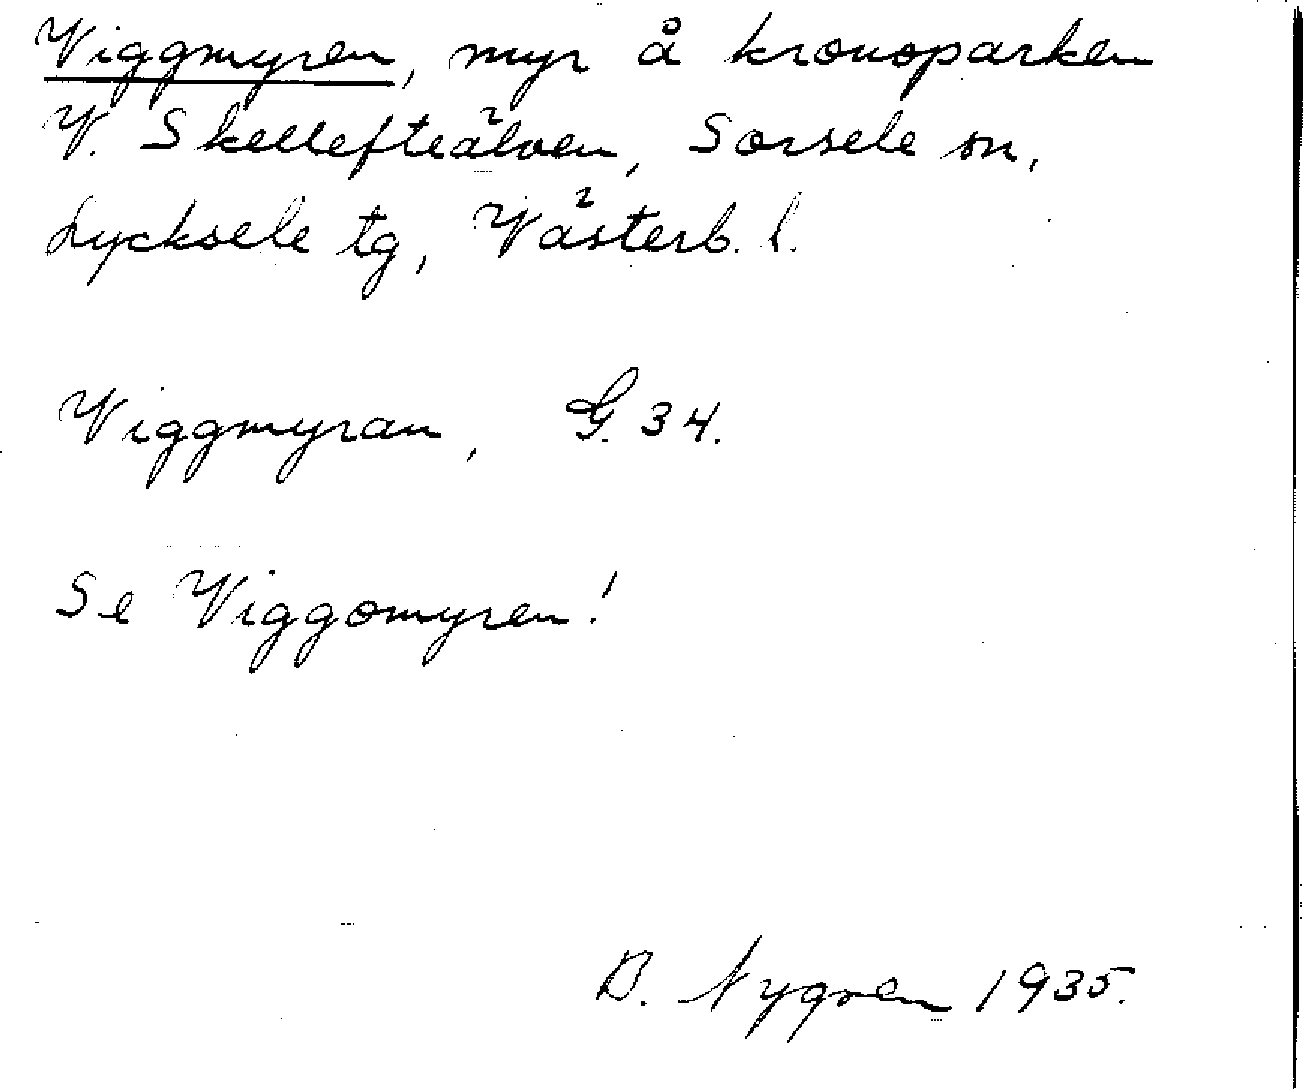 Viggmyren, myr å kronoparken
V. Skellefteälven, Sorsele sn,
Lycksele tg, Västerb. l.
Viggmyran, G. 34.
Se Viggomyren!
B. Nygren 1935.